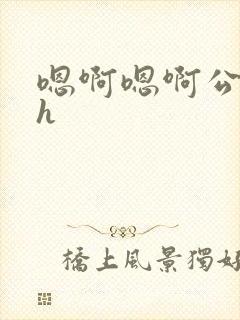 嗯啊嗯啊公
h
橋上風景獨好